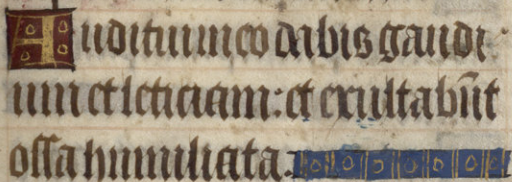 Auditui meo dabis gaudi
um et leticiam: et exultabūt
ossa humiliata.